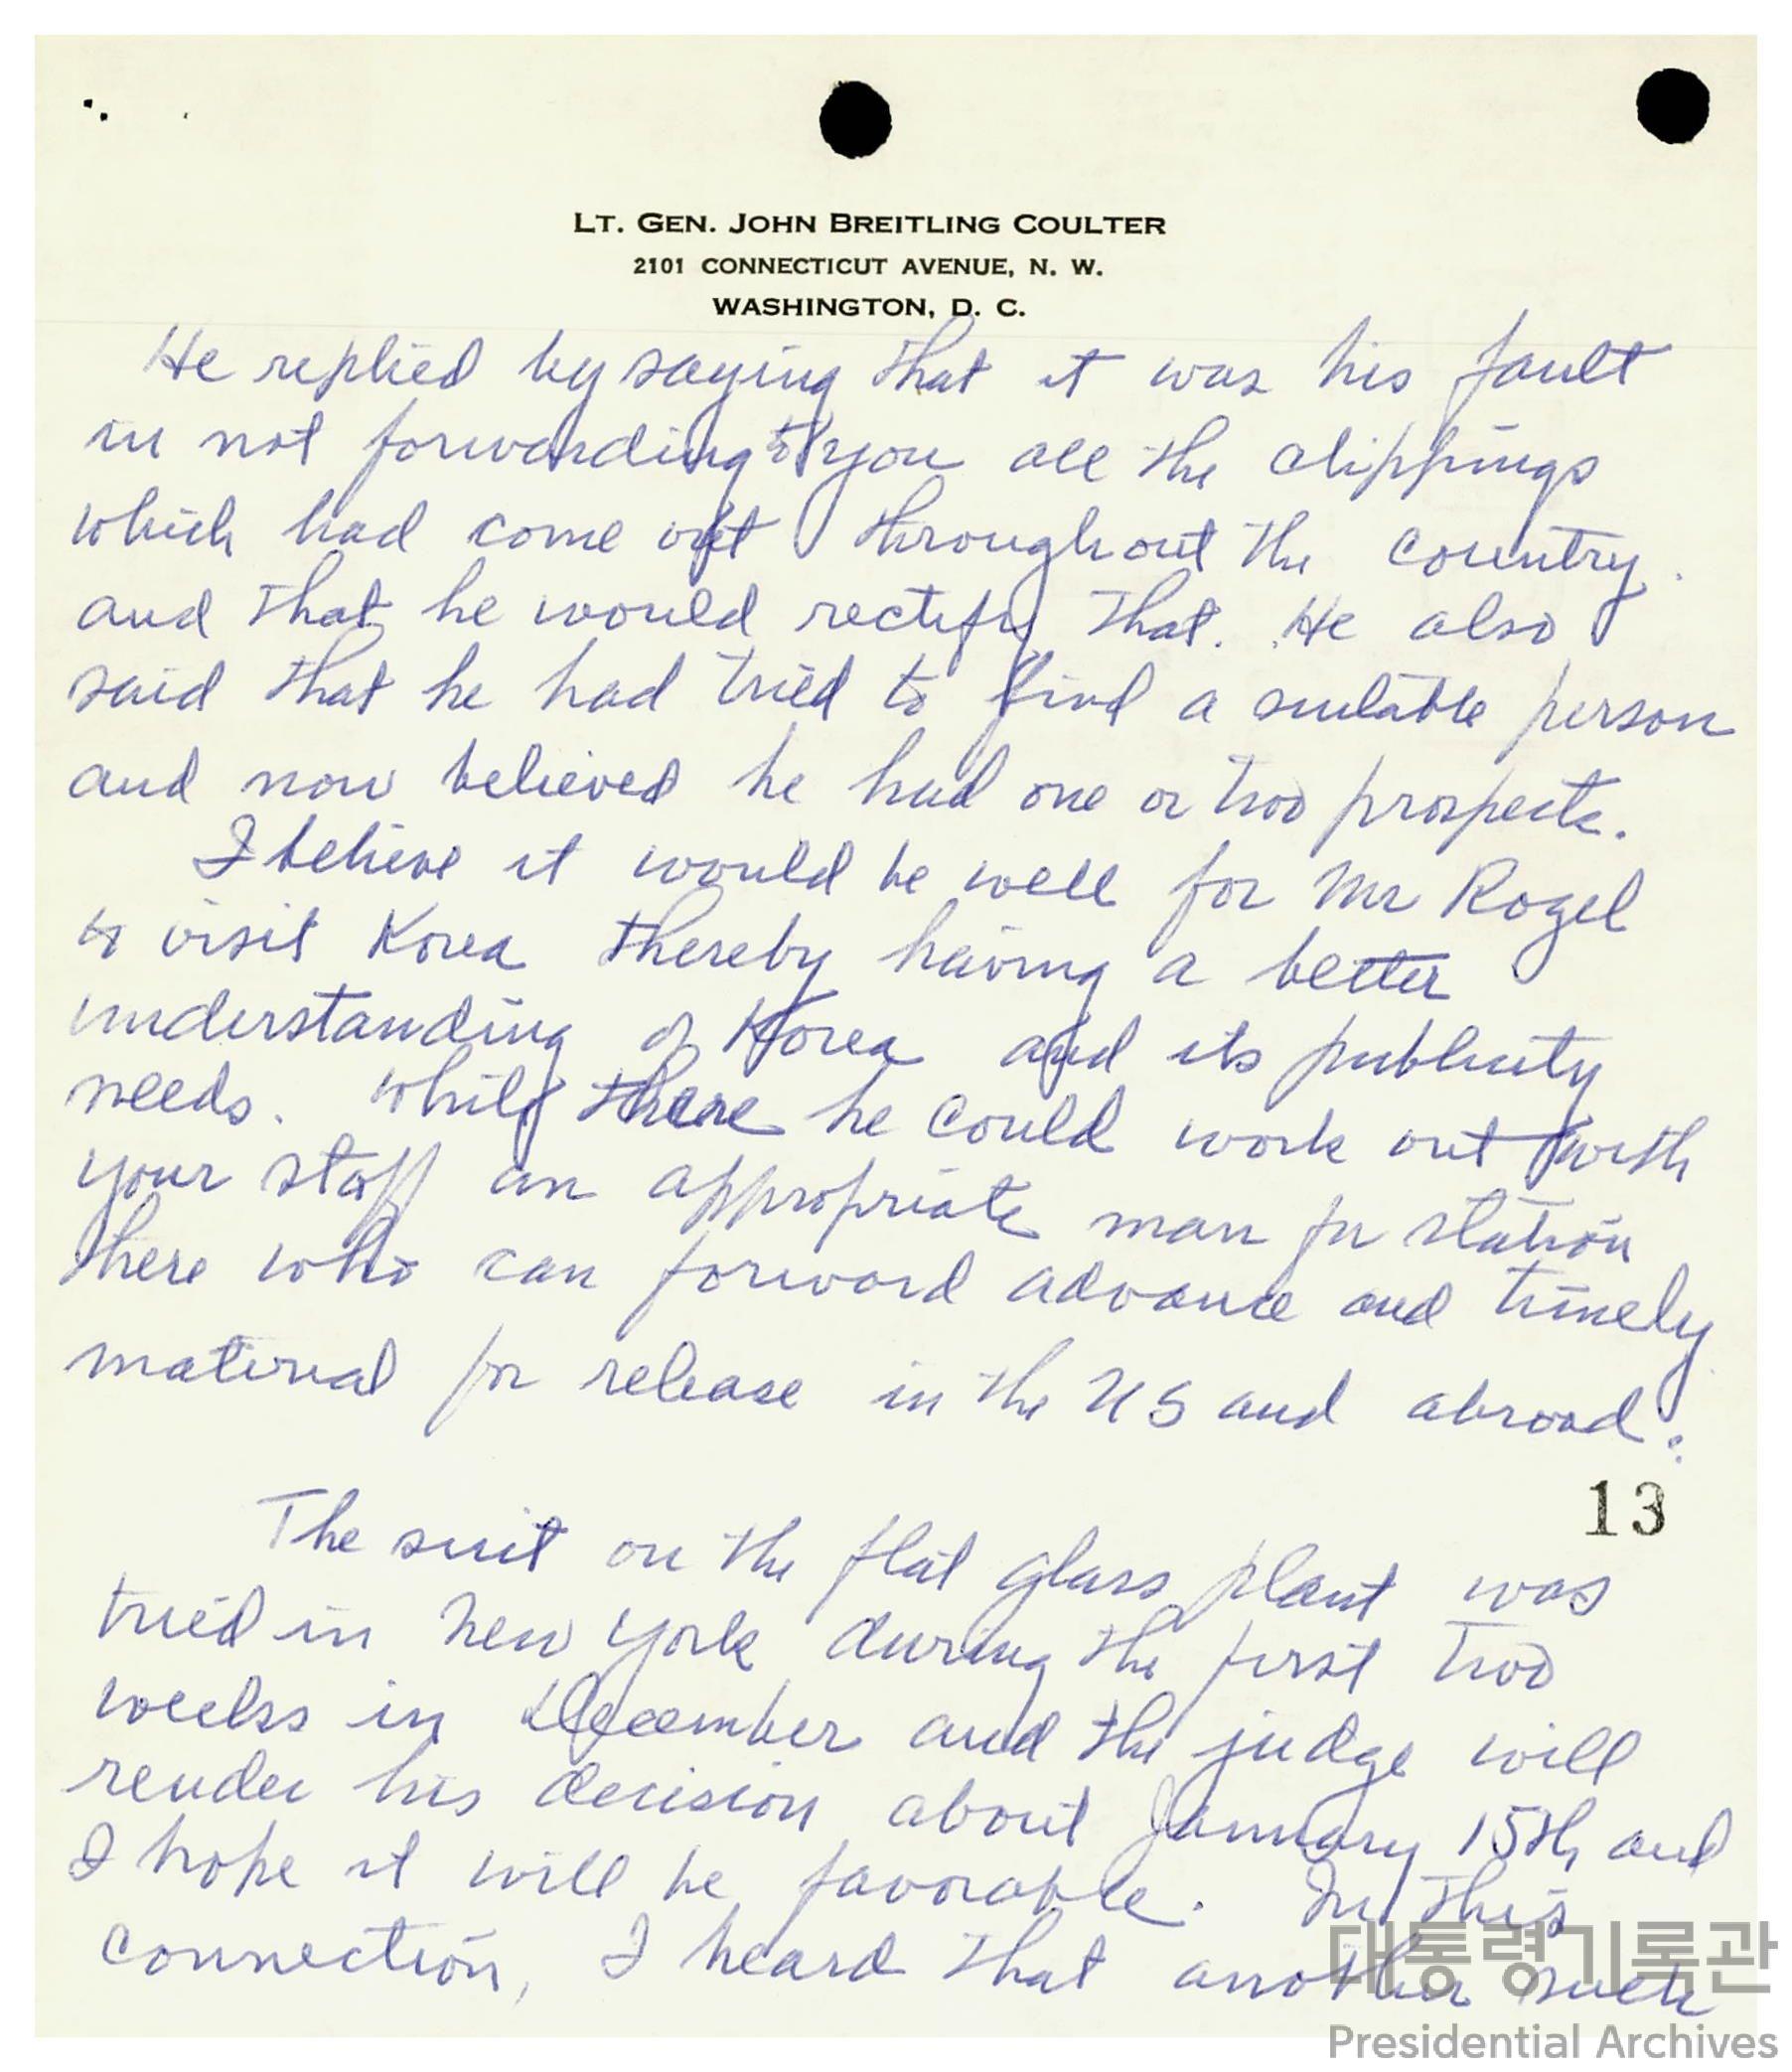 LT. GEN. JOHN BREITLING COULTER
2101 CONNECTICUT AVENUE, N. W.
WASHINGTON, D. C.
He replied by saying that it was his fault
in not forwarding to you all the clippings
which had come out throughout the country.
and that he would rectify that. He also
said that he had tried to find a suitable person
and now believed he had one or two prospects.
I believe it would be well for Mr Rogel
to visit Korea thereby having a better
understanding of Korea and its publicity
needs. While there he could work out with
your staff an appropriate man for station
there who can forward advance and timely
material for release in the US and abroad.
13
The suit on the flat glass plant was
tried in New York during the first two
weeks in December and the judge will
render his decision about January 15th and
I hope it will be favorable. In this
connection, I heard that another such
대통령기록관
Presidential Archives